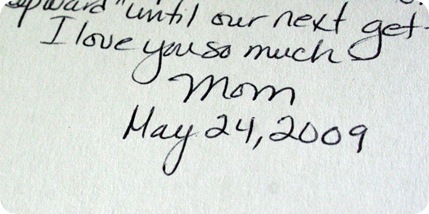 upward" until our next get-
I love you so much
Mom
May 24, 2009